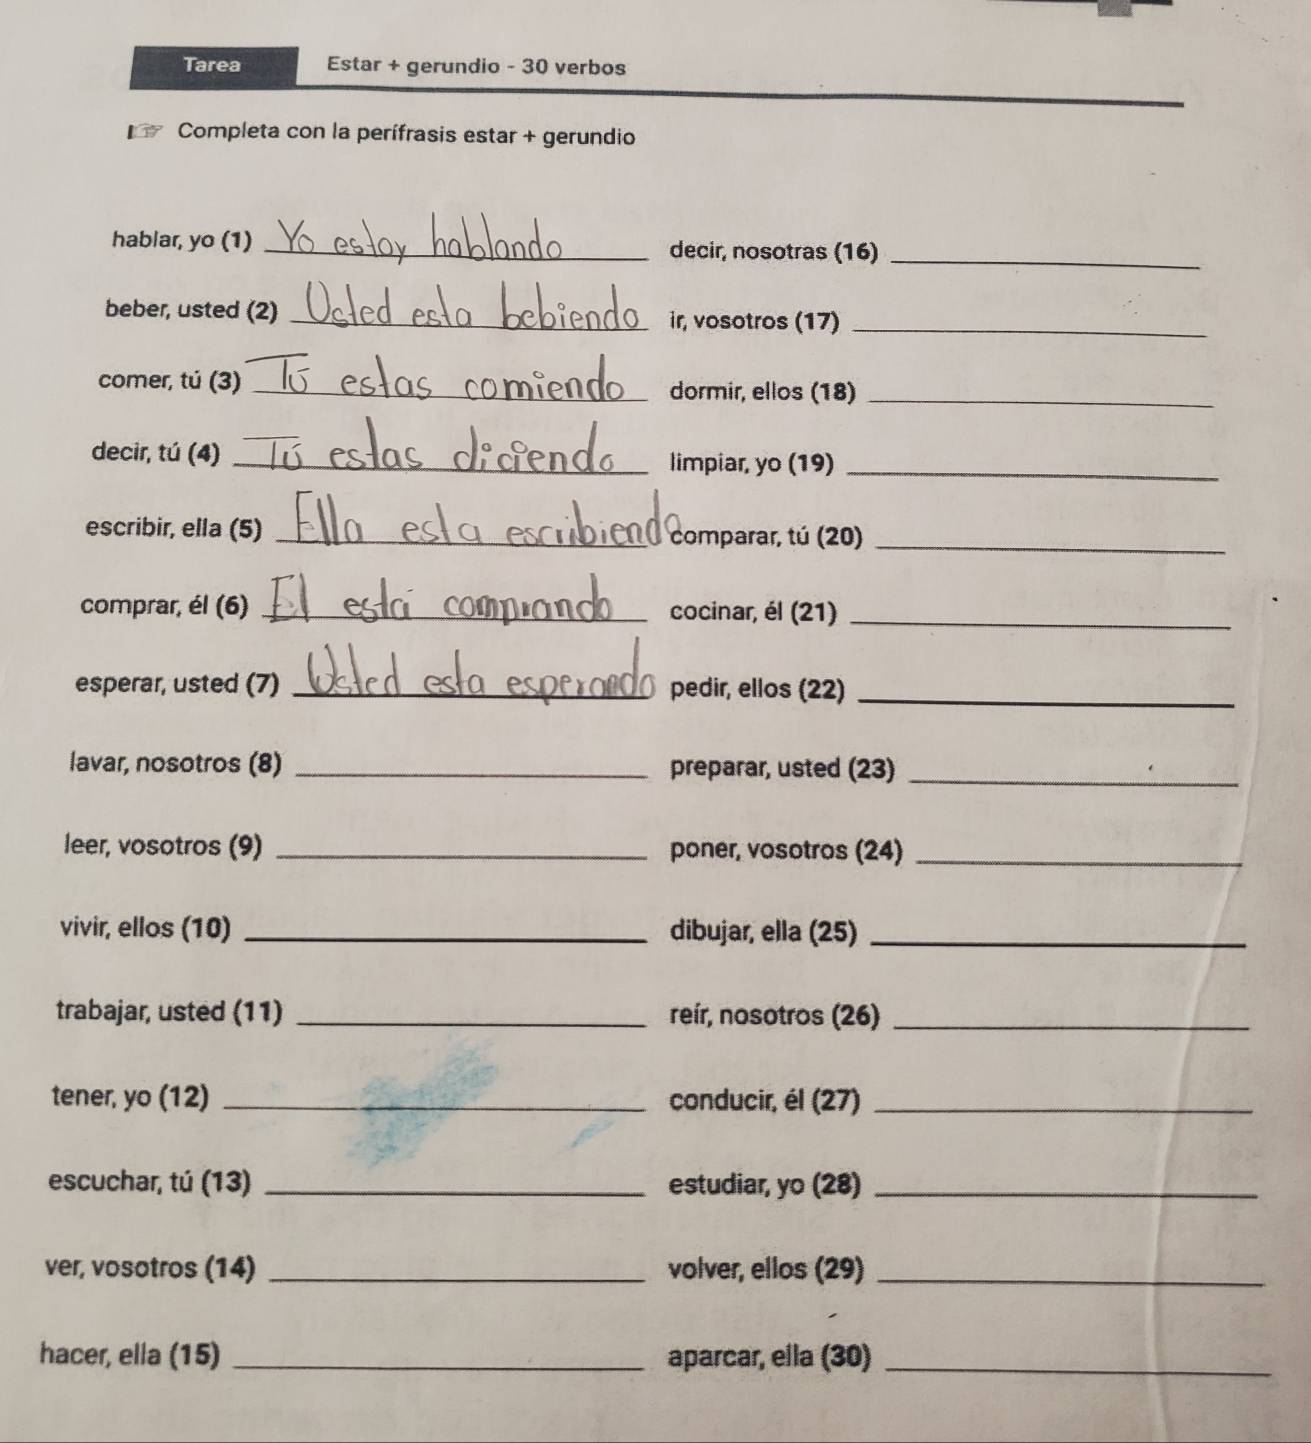 Tarea Estar + gerundio - 30 verbos
☞ Completa con la perífrasis estar + gerundio
hablar, yo (1) Yo estoy hablando
beber, usted (2) Usted esta bebiendo
comer, tú (3) Tú estas comiendo
decir, tú (4) Tú estas diciendo
escribir, ella (5) Ella esta escribiendo
comprar, él (6) El está comprando
esperar, usted (7) Usted esta esperando
lavar, nosotros (8)
leer, vosotros (9)
vivir, ellos (10)
trabajar, usted (11)
tener, yo (12)
escuchar, tú (13)
ver, vosotros (14)
hacer, ella (15)
decir, nosotras (16)
ir, vosotros (17)
dormir, ellos (18)
limpiar, yo (19)
comparar, tú (20)
cocinar, él (21)
pedir, ellos (22)
preparar, usted (23)
poner, vosotros (24)
dibujar, ella (25)
reír, nosotros (26)
conducir, él (27)
estudiar, yo (28)
volver, ellos (29)
aparcar, ella (30)